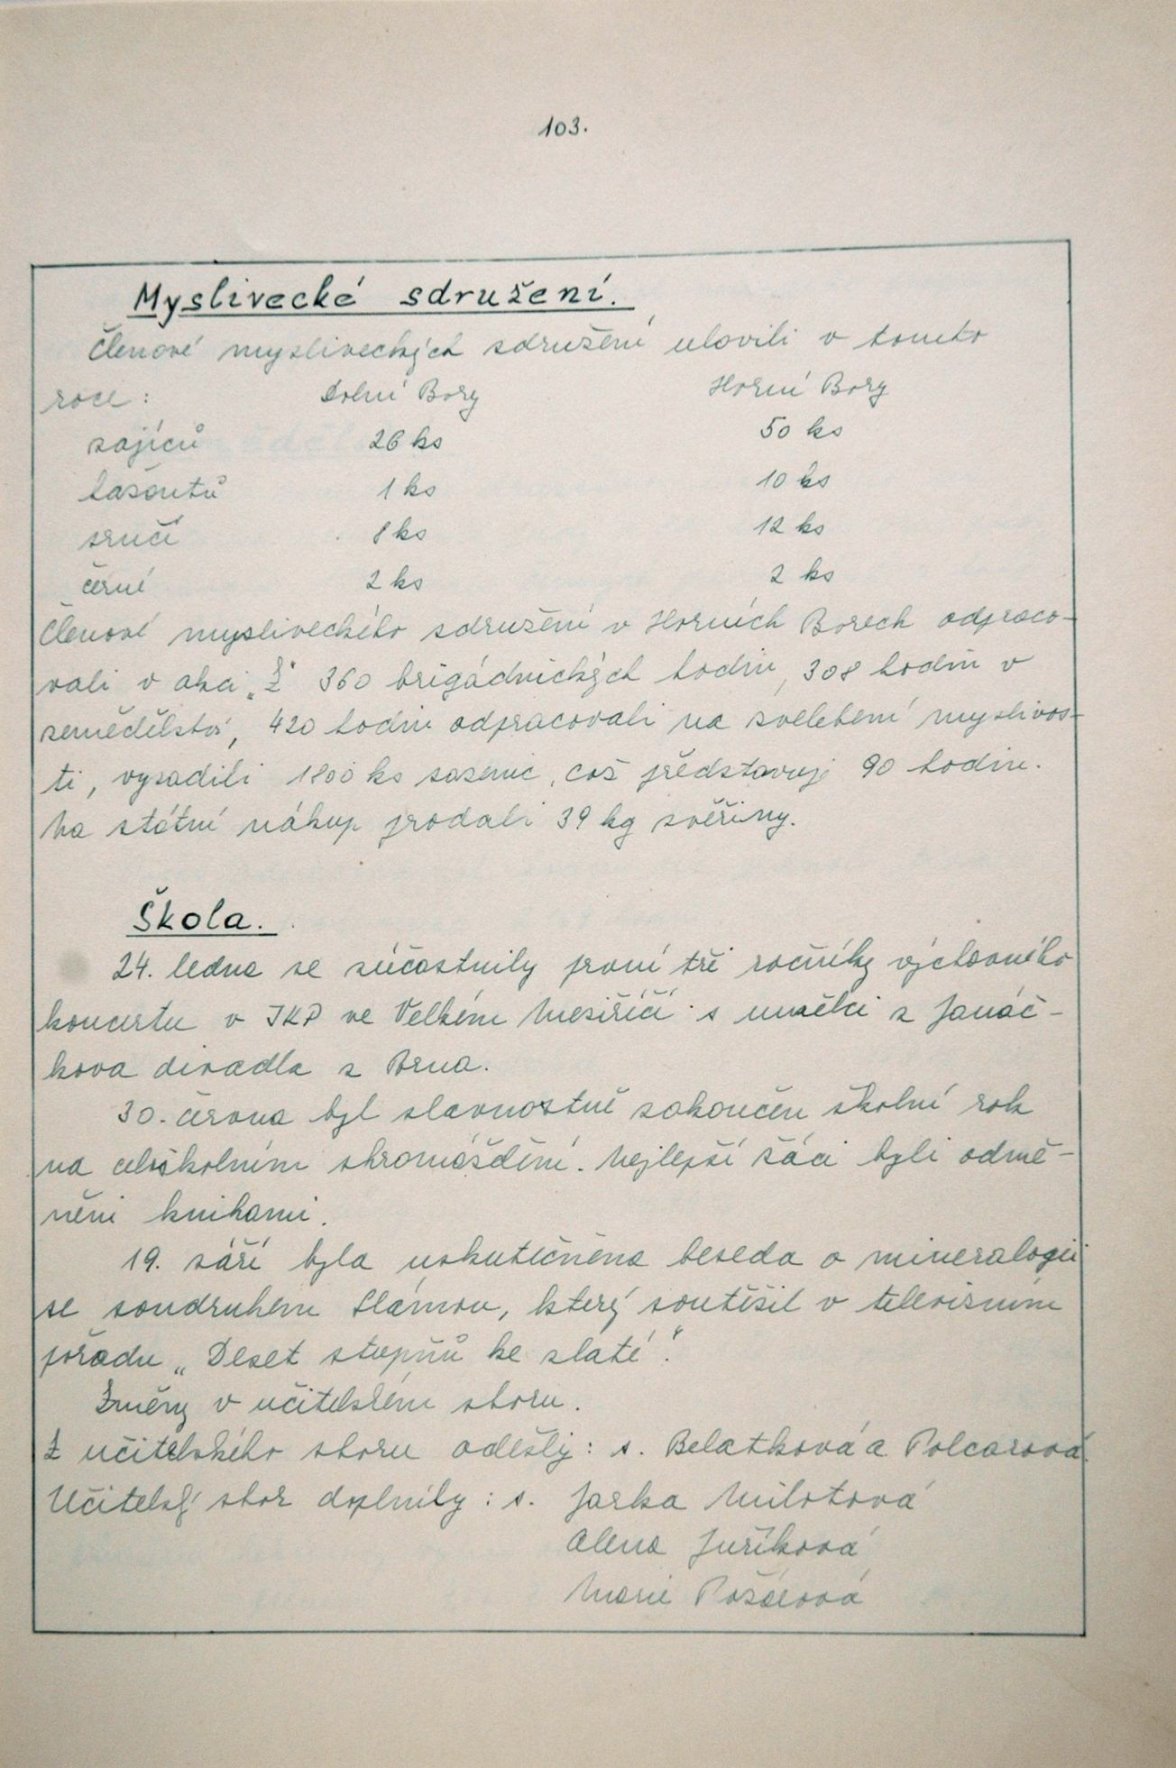 103.
Myslivecké sdružení.
Členové mysliveckých sdružení ulovili v tomto
roce: Dolní Bory Horní Bory
zajíců 26 ks 50 ks
bažantů 1 ks 10 ks
srnčí 8 ks 12 ks
černé 2 ks 2 ks
Členové mysliveckého sdružení v Horních Borech odpraco-
vali v akci „Z“ 360 brigádnických hodin, 308 hodin v
zemědělství, 420 hodin odpracovali na zvelebení myslivos-
ti, vysadili 1800 ks sazenic, což představuje 90 hodin.
Na státní nákup prodali 39 kg zvěřiny.
Škola.
24. ledna se zúčastnily první tři ročníky výchovného
koncertu v JKP ve Velkém Meziříčí s umělci z Janáč-
kova divadla z Brna.
30. června byl slavnostně zakončen školní rok
na celoškolním shromáždění. Nejlepší žáci byli odmě-
něni knihami.
19. září byla uskutečněna beseda o mineralogii
se soudruhem Slámou, který soutěžil v televizním
pořadu „Deset stupňů ke zlaté“.
Změny v učitelském sboru.
Z učitelského sboru odešly: s. Belatková a Polcarová.
Učitelský sbor doplnily: s. Jarka Milotová
Alena Juříková
Marie Požárová